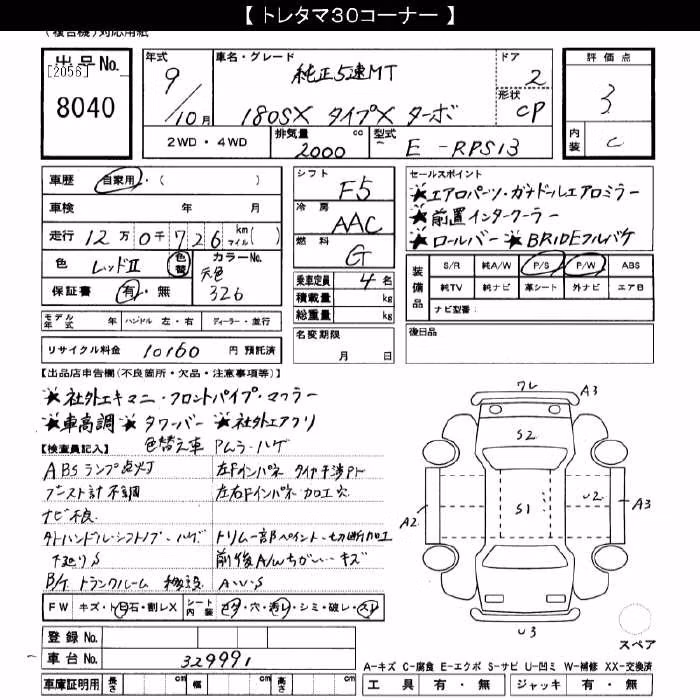 【 トレタマ30コーナー 】
(複合機)対応用紙
出品No.
[2056]
8040
年式 9/10月
車名・グレード 純正5速MT
180SX タイプX ターボ
ドア 2
形状 CP
評価点 3
内装 C
2WD・4WD
排気量 2000 cc
型式 E-RPS13
車歴 自家用・( )
車検 年 月
走行 12万0千726 km マイル( )
色 レッドII 色替 カラーNo. 元色 326
保証書 有・無
モデル年式 年 ハンドル 左・右 ディーラー・並行
リサイクル料金 10160 円 預託済
シフト F5
冷房 AAC
燃料 G
乗車定員 4 名
積載量 kg
総重量 kg
名変期限 月 日
セールスポイント
★エアロパーツ・ガナドールエアロミラー
★前置インタークーラー
★ロールバー ★BRIDEフルバケ
装備品 S/R 純A/W P/S P/W ABS
純TV 純ナビ 革シート 外ナビ エアB
ナビ型番:
後日品
【出品店申告欄(不良箇所・欠品・注意事項等)】
★社外エキマニ・フロントパイプ・マフラー
★車高調 ★タワーバー ★社外エアクリ
【検査員記入】 色替え車 Pムラ・ハゲ
ABSランプ点灯 左Fインパネ タイヤ干渉
ブースト計不調 左右Fインパネ 加工穴
ナビ不良
外ハンドル・シフトノブ・ハゲ トリム一部ペイント・切断加工
下廻りS 前後A/Wちがい・キズ
B/K トランクルーム A・U・S
FW キズ・トビ石・割レX シート内装 コゲ・穴・汚レ・シミ・破レ・スレ
登録No.
車台No. 329991
車庫証明用 長さ cm 幅 cm 高さ cm
ワレ A3
S2
S1
A2
U2
A3
U3
スペア
A-キズ C-腐食 E-エクボ S-サビ U-凹ミ W-補修 XX-交換済
工具 有・無 ジャッキ 有・無